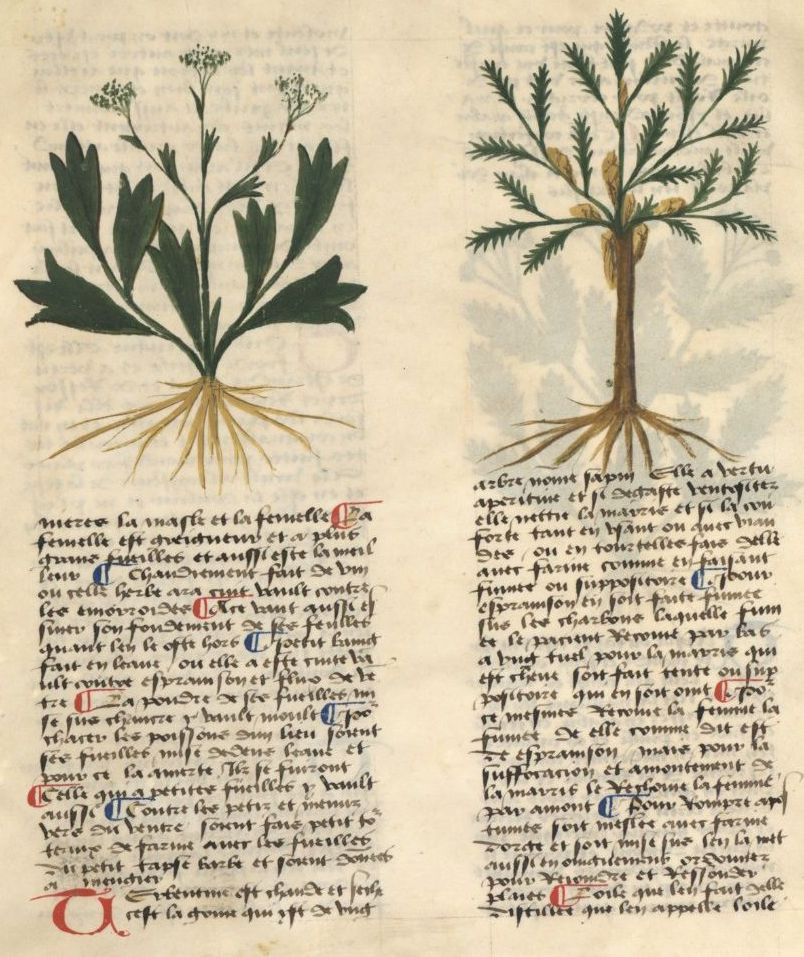 nieres la masle et la femelle ¶ La
femelle est greigneur et a plus
grans fueilles et aussi est e la meil
leur ¶ Chaudement fait de vin
ou celle herbe ara cuit vault contre
les emorroides ¶ Ace vault aussi es
suier son fondement de ses feulles
quant len le oste hors ¶ petit baing
fait en leaue ou elle a este cuite va
ult contre esprainson et fluo de ve
tre ¶ La poudre de ses fueilles mi
se sus chancre y vault moult ¶ Por
chacer les poissons dun lieu soient
ses fueilles mise dedens leaue et
pour ce la amerte Ilz se fuiront
¶ Celle qui a petites fueilles y vault
aussi ¶ Contre les petiz et menuz
vers du ventre soient fais petit to
teaux de farine avec les fueilles
du petit tapse barbe et soient donees
a mengier
Terbentine est chaude et seiche
cest la gome qui ist de ung
arbre nome sapin Elle a vertu
aperitive et si degaste ventositez
elle nettie la marris et si la con
forte tant en usant ou avec vian
des ou en tourtelles fais delle
avec farine comme en faisant
fumee ou suppositoire ¶ Pour
esprainson en soit faite fumee
sus les charbons laquelle fum
ee le pacient recoive par bas
a ung tuel pour la marris qui
est cheue soit fait tente ou sup
positoire qui en soit oint ¶ Por
ce mesmes recoive la femme la
fumee de elle comme dit est
de esprainson mais pour la
suffocacion et amontement de
la marris le rechoive la femme
par amont ¶ Pour rompre apos
tumes soit meslee avec farine
dorge et soit mise sus len la met
aussi en oinguemens ordonnez
pour rejoindre et ressouder
plaies ¶ Loile que len fait delle
distillee que len appelle loile